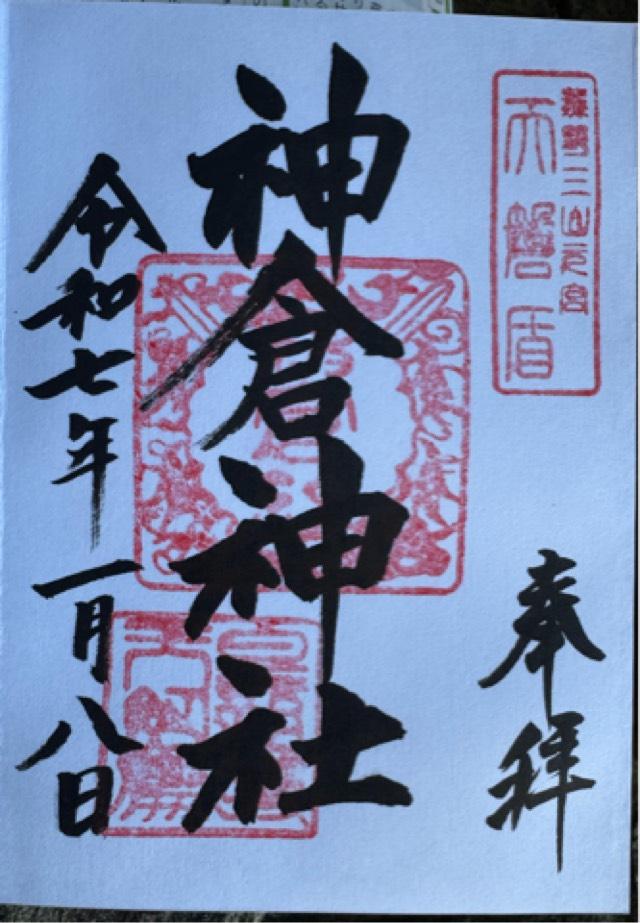 熊野三山元宮
天磐盾
奉拝
神倉神社
令和七年一月八日